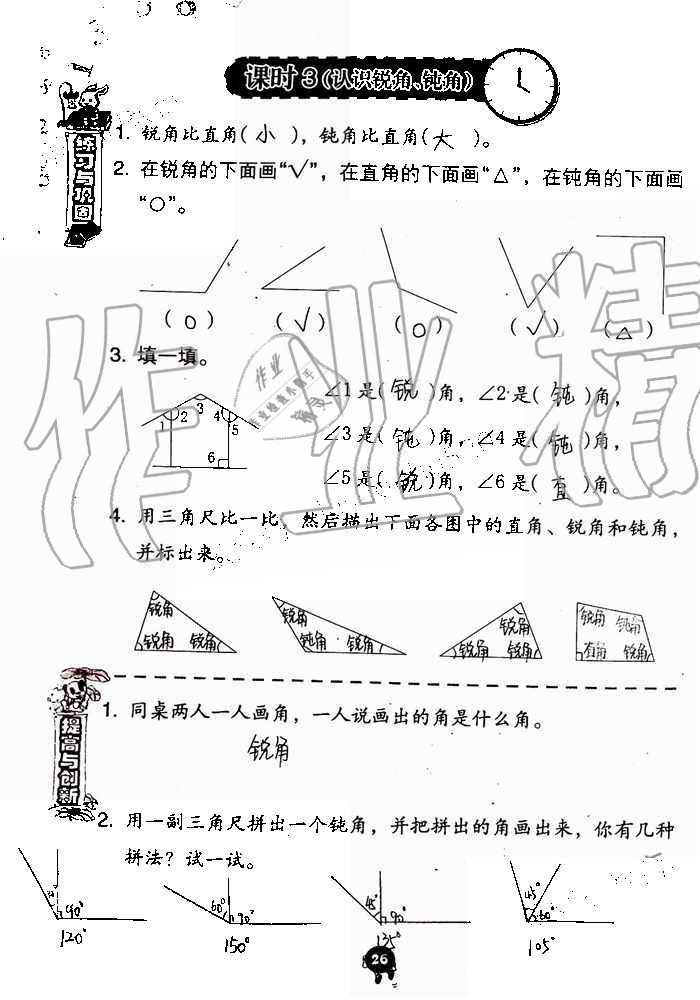 课时3(认识锐角、钝角)
练习与巩固
1. 锐角比直角(小),钝角比直角(大)。
2. 在锐角的下面画“√”,在直角的下面画“△”,在钝角的下面画
“○”。
(○) (√) (○) (√) (△)
3. 填一填。
1 2 3 4 5 6
∠1是(锐)角,∠2是(钝)角,
∠3是(钝)角,∠4是(钝)角,
∠5是(锐)角,∠6是(直)角。
4. 用三角尺比一比,然后描出下面各图中的直角、锐角和钝角,
并标出来。
锐角 锐角 锐角 锐角 钝角 锐角 锐角 锐角 锐角 锐角 钝角 直角 锐角
提高与创新
1. 同桌两人一人画角,一人说画出的角是什么角。
锐角
2. 用一副三角尺拼出一个钝角,并把拼出的角画出来,你有几种
拼法?试一试。
90° 60° 90° 45° 90° 45° 60°
120° 150° 135° 105°
26
作业精
作业检查小帮手